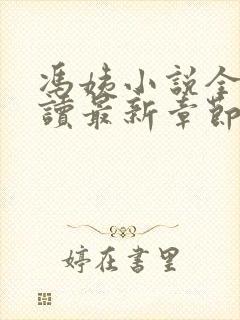 馮姨小说全
讀最新章節
婷在書里